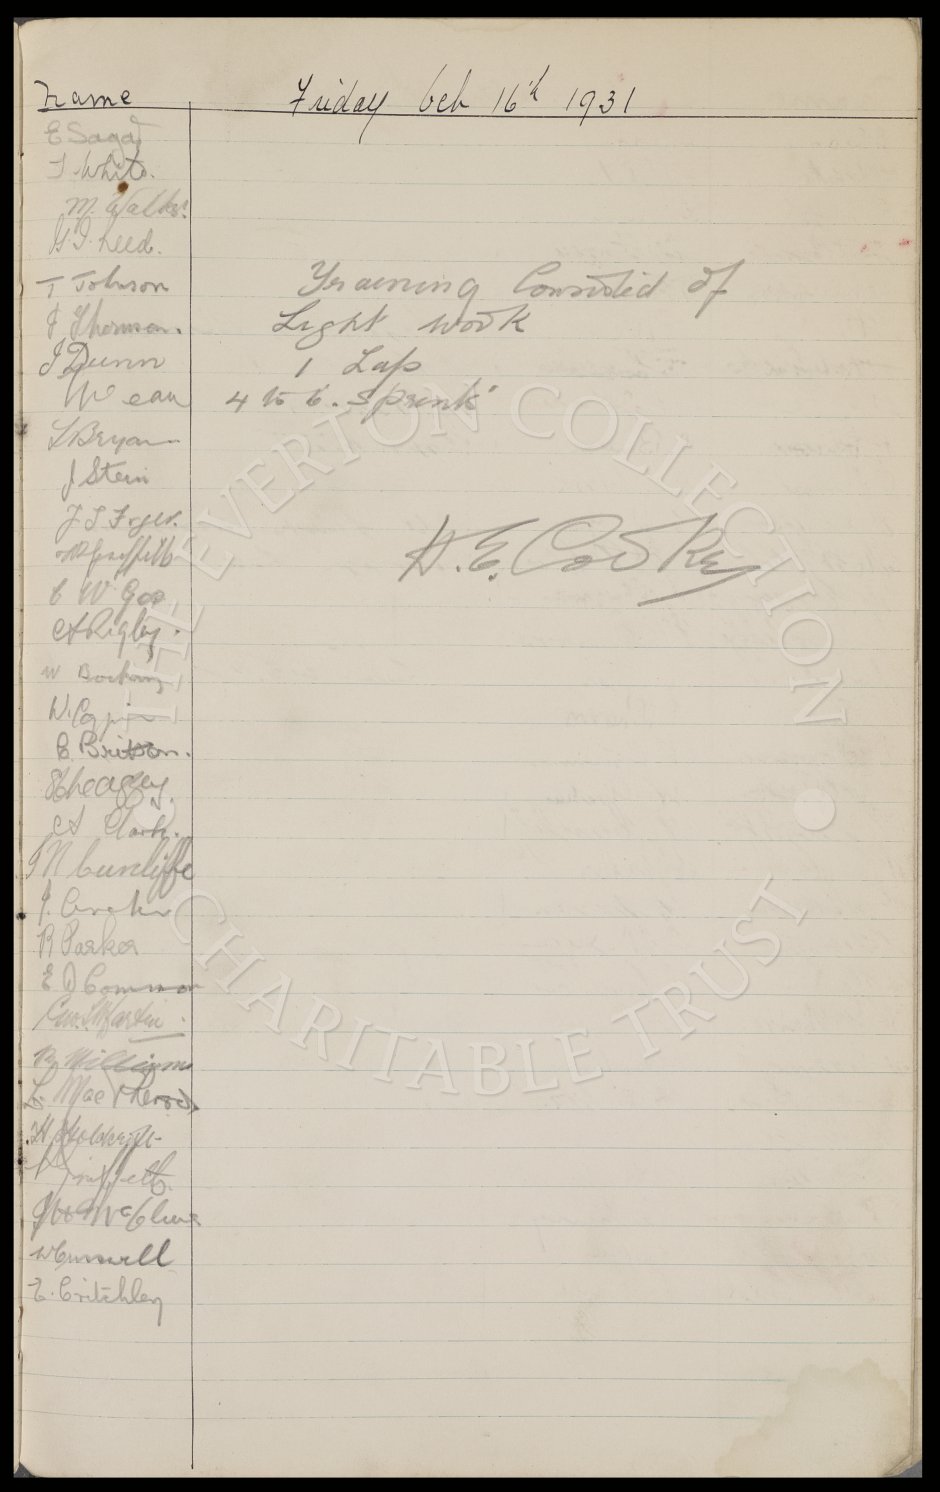 Name
Friday Oct 16th 1931
E Sagar
T White.
M. Walker
G I. Leed.
T Johnson
J Thomson.
J Dunn
W Dean
L Bryan
J Stein
Training Consisted of
Light work
1 Lap
4 to 6. Sprints
H. E. Cooke
Griffiths
C W Gee
A Rigby.
W Bocking
W. Coggins
C. Britton.
A Clark.
J N Cunliffe
J. Archer
R Parker
E D Common
Geo. S Martin.
R Williams
L. MacPherson
Griffiths.
McClure
W Cresswell
E. Critchley
THE EVERTON COLLECTION
CHARITABLE TRUST